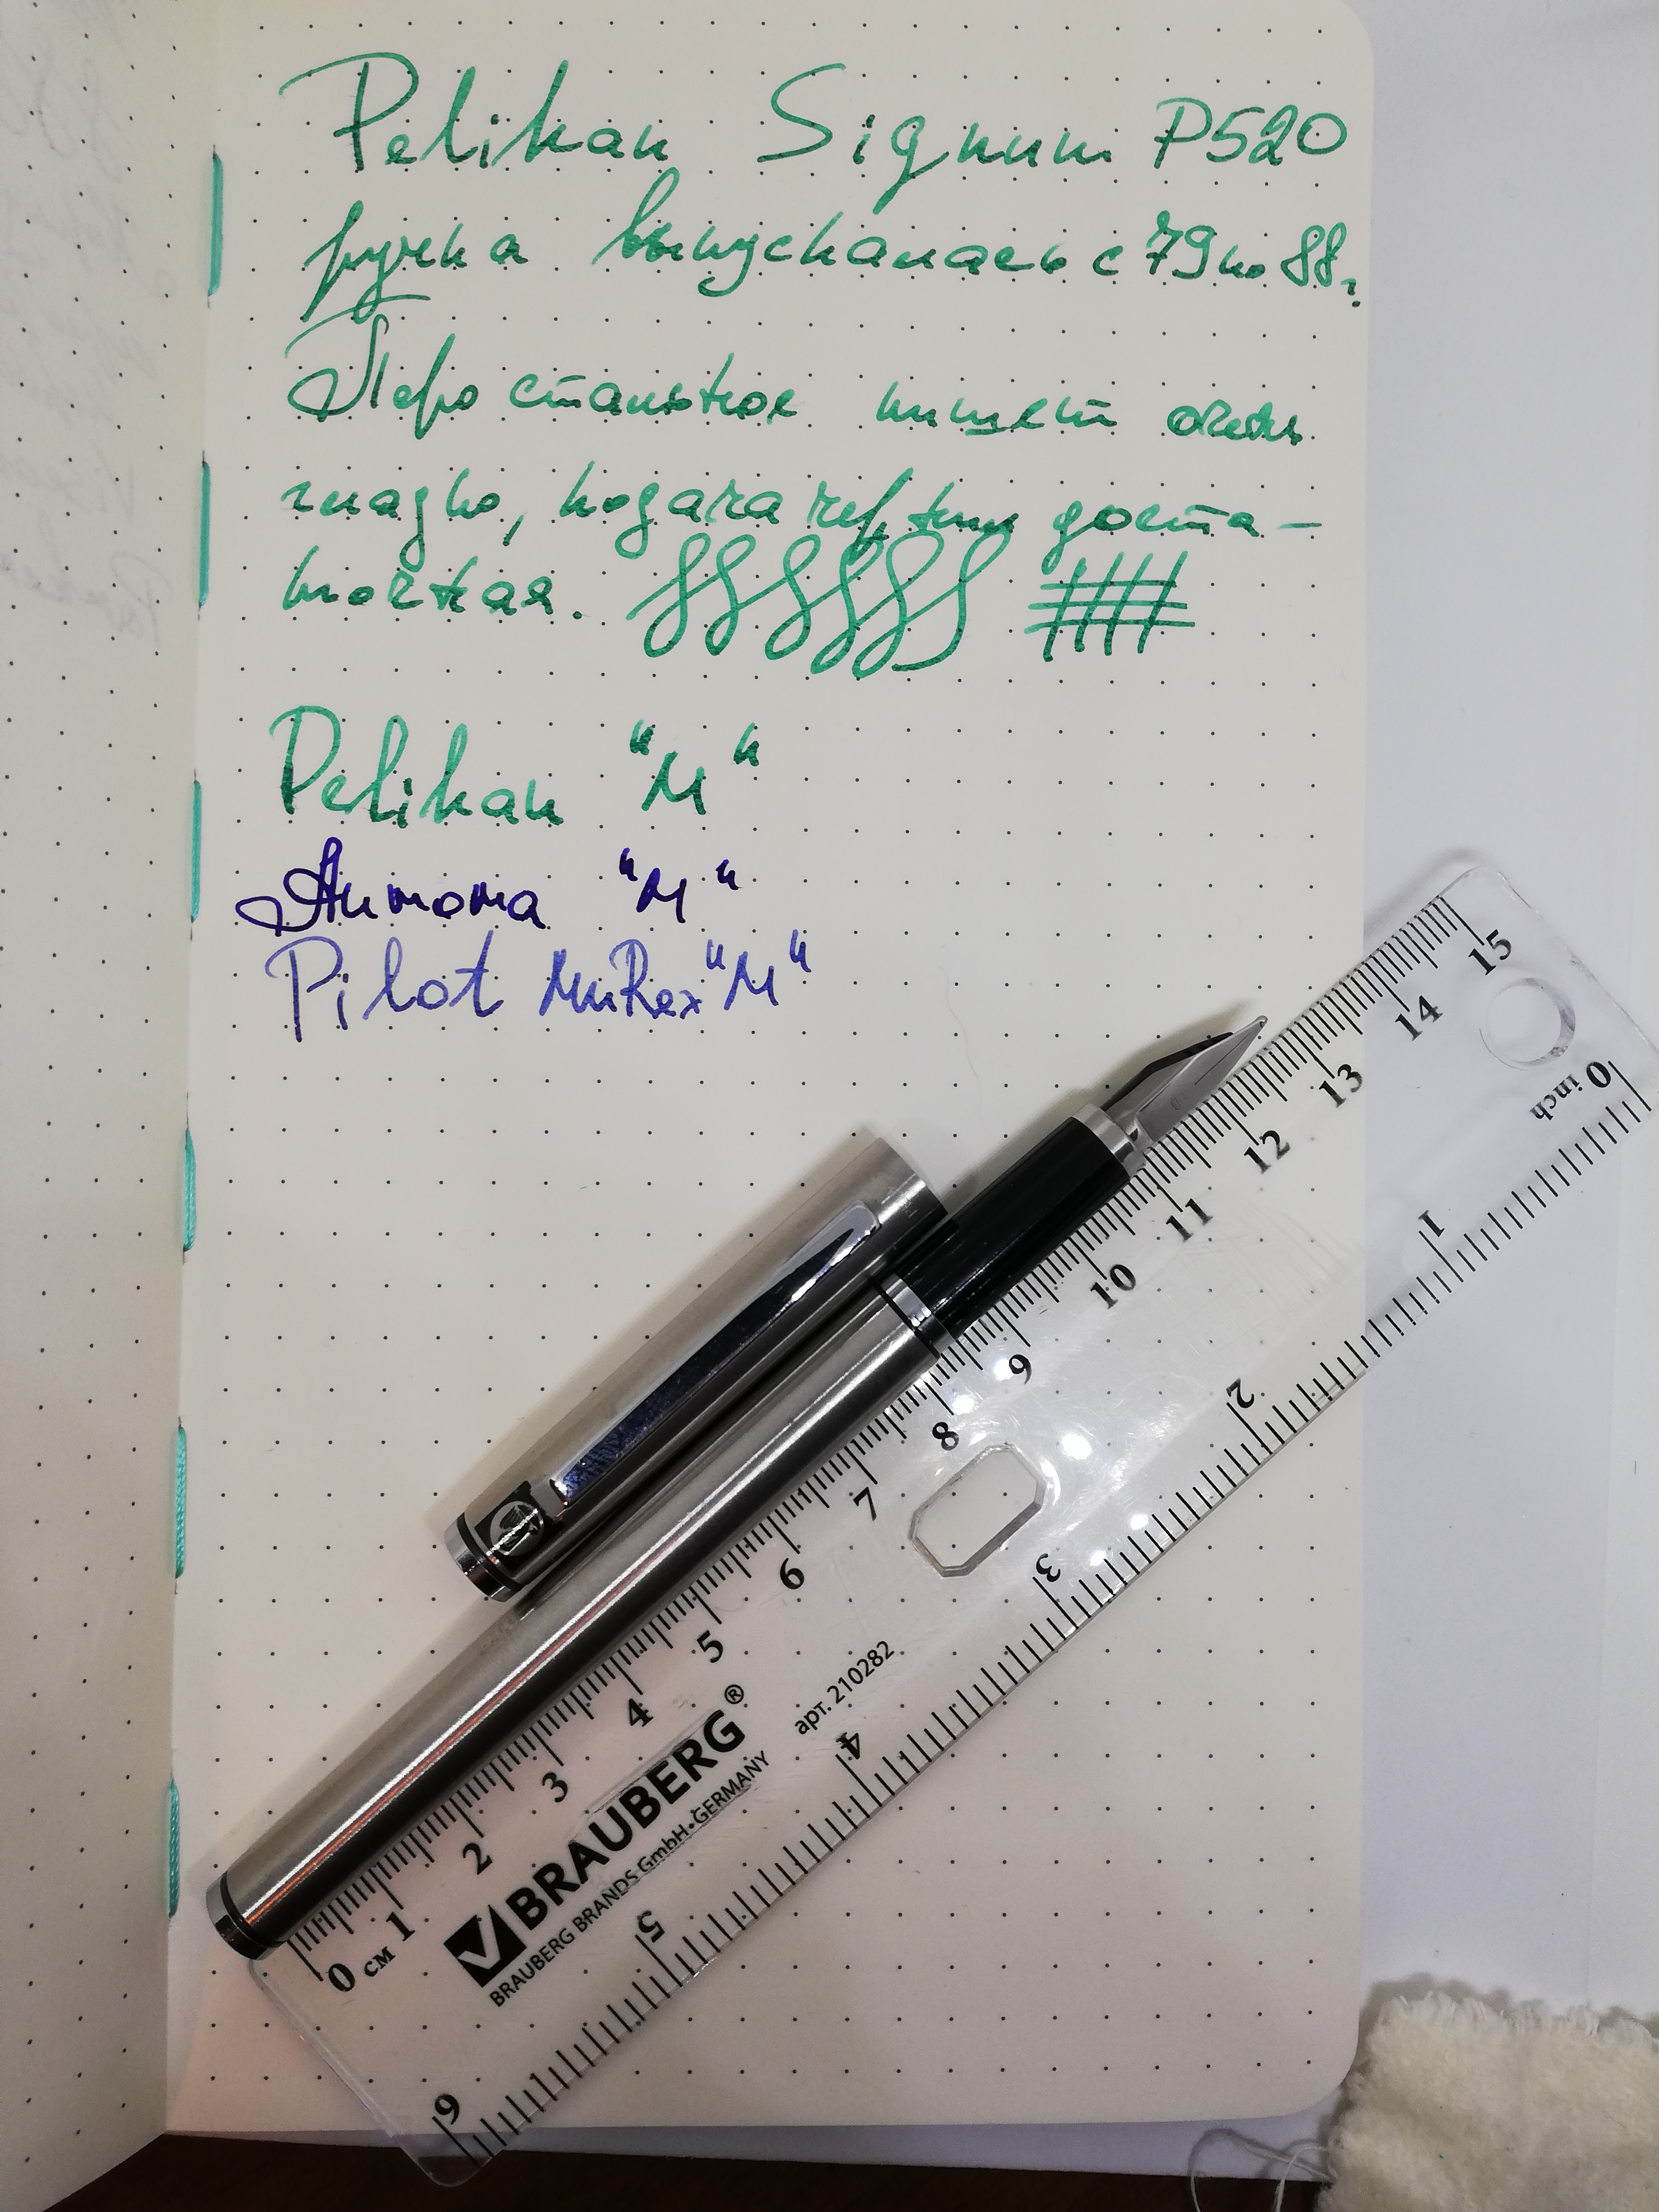 Pelikan Signum P520
ручка выпускалась с 79 по 88 г.
Перо стальное пишет очень
гладко, подача чернил доста-
точная.
Pelikan "М"
Антота "М"
Pilot MuRex "М"
0 см 1 2 3 4 5 6 7 8 9 10 11 12 13 14 15
BRAUBERG®
BRAUBERG BRANDS GmbH•GERMANY
арт. 210282
0 inch 1 2 3 4 5 6